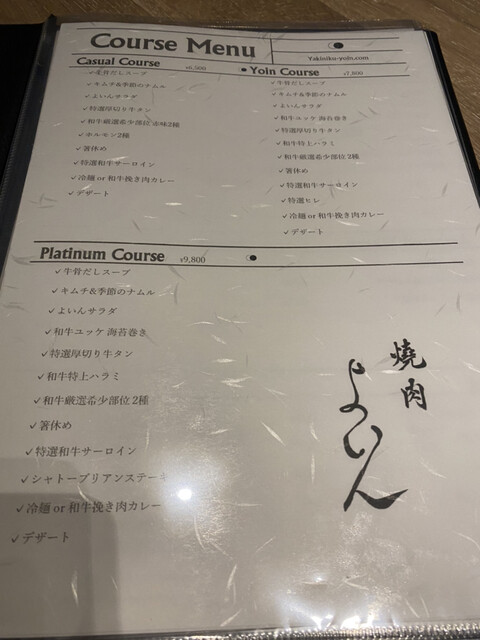 Course Menu
Yakiniku-yoin.com
Casual Course ¥6,500
✓牛骨だしスープ
✓キムチ&季節のナムル
✓よいんサラダ
✓特選厚切り牛タン
✓和牛厳選希少部位 赤味2種
✓ホルモン2種
✓箸休め
✓特選和牛サーロイン
✓冷麺 or 和牛挽き肉カレー
✓デザート
Yoin Course ¥7,800
✓牛骨だしスープ
✓キムチ&季節のナムル
✓よいんサラダ
✓和牛ユッケ 海苔巻き
✓特選厚切り牛タン
✓和牛特上ハラミ
✓和牛厳選希少部位 2種
✓箸休め
✓特選和牛サーロイン
✓特選ヒレ
✓冷麺 or 和牛挽き肉カレー
✓デザート
Platinum Course ¥9,800
✓牛骨だしスープ
✓キムチ&季節のナムル
✓よいんサラダ
✓和牛ユッケ 海苔巻き
✓特選厚切り牛タン
✓和牛特上ハラミ
✓和牛厳選希少部位 2種
✓箸休め
✓特選和牛サーロイン
✓シャトーブリアンステーキ
✓冷麺 or 和牛挽き肉カレー
✓デザート
焼肉
よいん